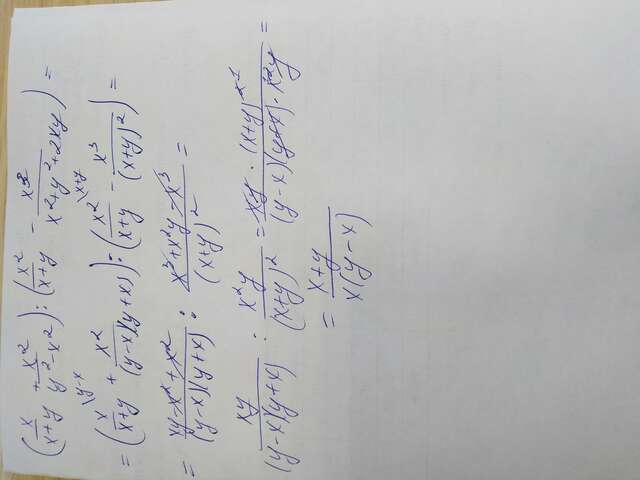 (x/(x+y) + x²/(y²-x²)) : (x²/(x+y) - x³/(x²+y²+2xy)) =
= (x\y-x/(x+y) + x²/((y-x)(y+x))) : (x²\x+y/(x+y) - x³/(x+y)²) =
= (xy-x²+x²)/((y-x)(y+x)) : (x³+x²y-x³)/(x+y)² =
xy/((y-x)(y+x)) : x²y/(x+y)² = (xy · (x+y)²)/((y-x)(y+x) · x²y) =
= (x+y)/(x(y-x))